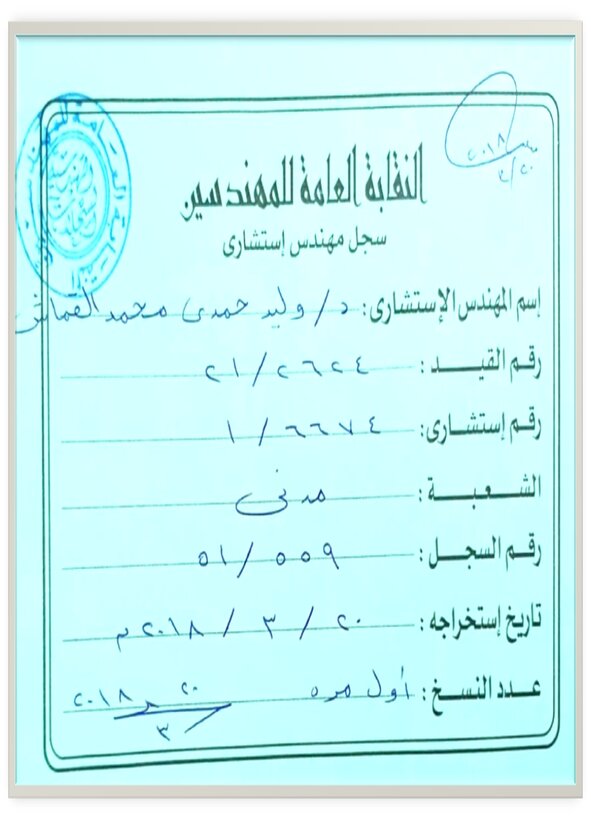 ٢٠١٨
٣/٢٠
النقابة العامة للمهندسين
سجل مهندس إستشارى
إسم المهندس الإستشارى: د/ وليد حمدى محمد القماش
رقم القيد: ٢١/٢٦٢٤
رقم إستشارى: ١/٦٦٧٤
الشعبة: مدنى
رقم السجل: ٥١/٥٥٩
تاريخ إستخراجه: ٢٠/٣/٢٠١٨م
عدد النسخ: أول مره ٢٠١٨/٣/٢٠